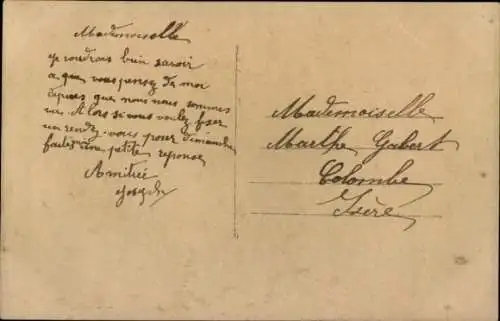 Mademoiselle
je voudrais bien savoir
ce que vous pensez de moi
depuis que nous nous sommes
vus. Alors si vous voulez fixer
un rendez-vous pour dimanche
faites moi une petite reponse
Amitiée
Mademoiselle
Marthe Gabert
Colombe
Isère